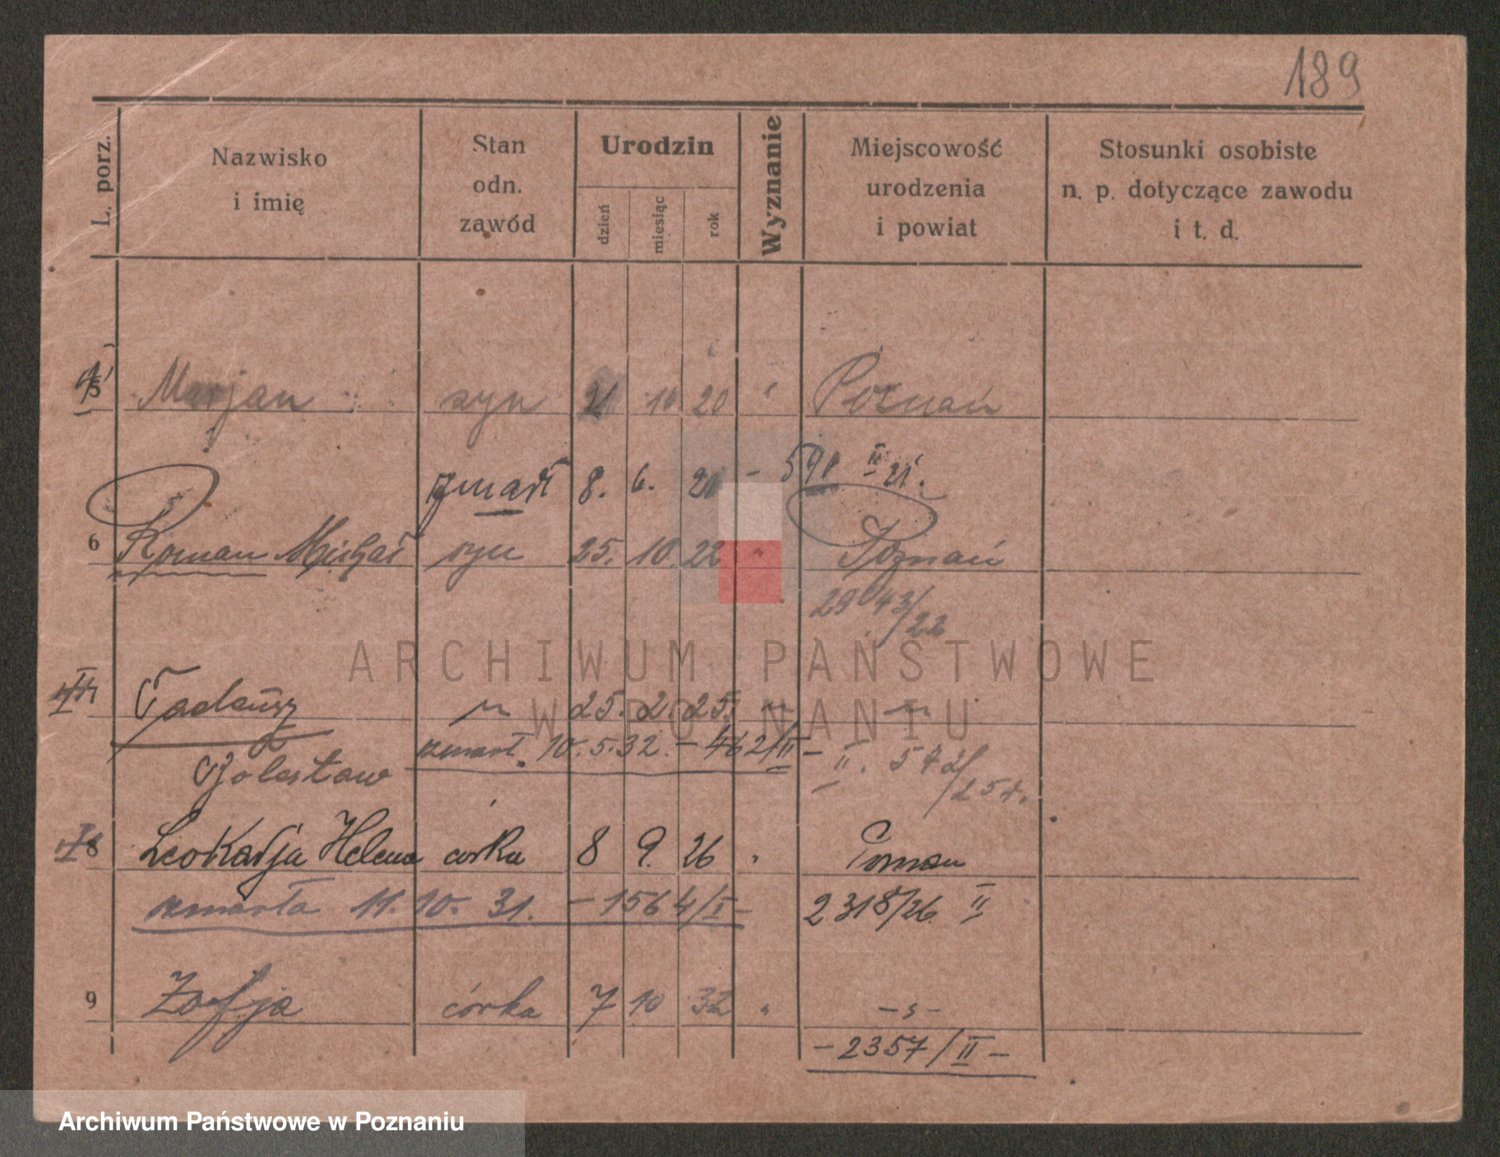 189
L. porz.
Nazwisko
i imię
Stan
odn.
zawód
Urodzin
dzień
miesiąc
rok
Wyznanie
Miejscowość
urodzenia
i powiat
Stosunki osobiste
n. p. dotyczące zawodu
i t. d.
5 Marjan syn 21 10 20 Poznań
zmarł 8. 6. 21 - II 21.
6 Roman Michał syn 25. 10. 22 " Poznań
2943/22
7 Tadeusz 25. 2. 25.
zmarł 10. 5. 32. - 462/II -
Bolesław II. 572/25
8 Leokadja Helena córka 8 9. 26 " Poznań
zmarła 11. 10. 31. - 1564/I - 2318/26 II
9 Zofja córka 7 10 32 " - " -
- 2357/II -
ARCHIWUM PAŃSTWOWE
W POZNANIU
Archiwum Państwowe w Poznaniu